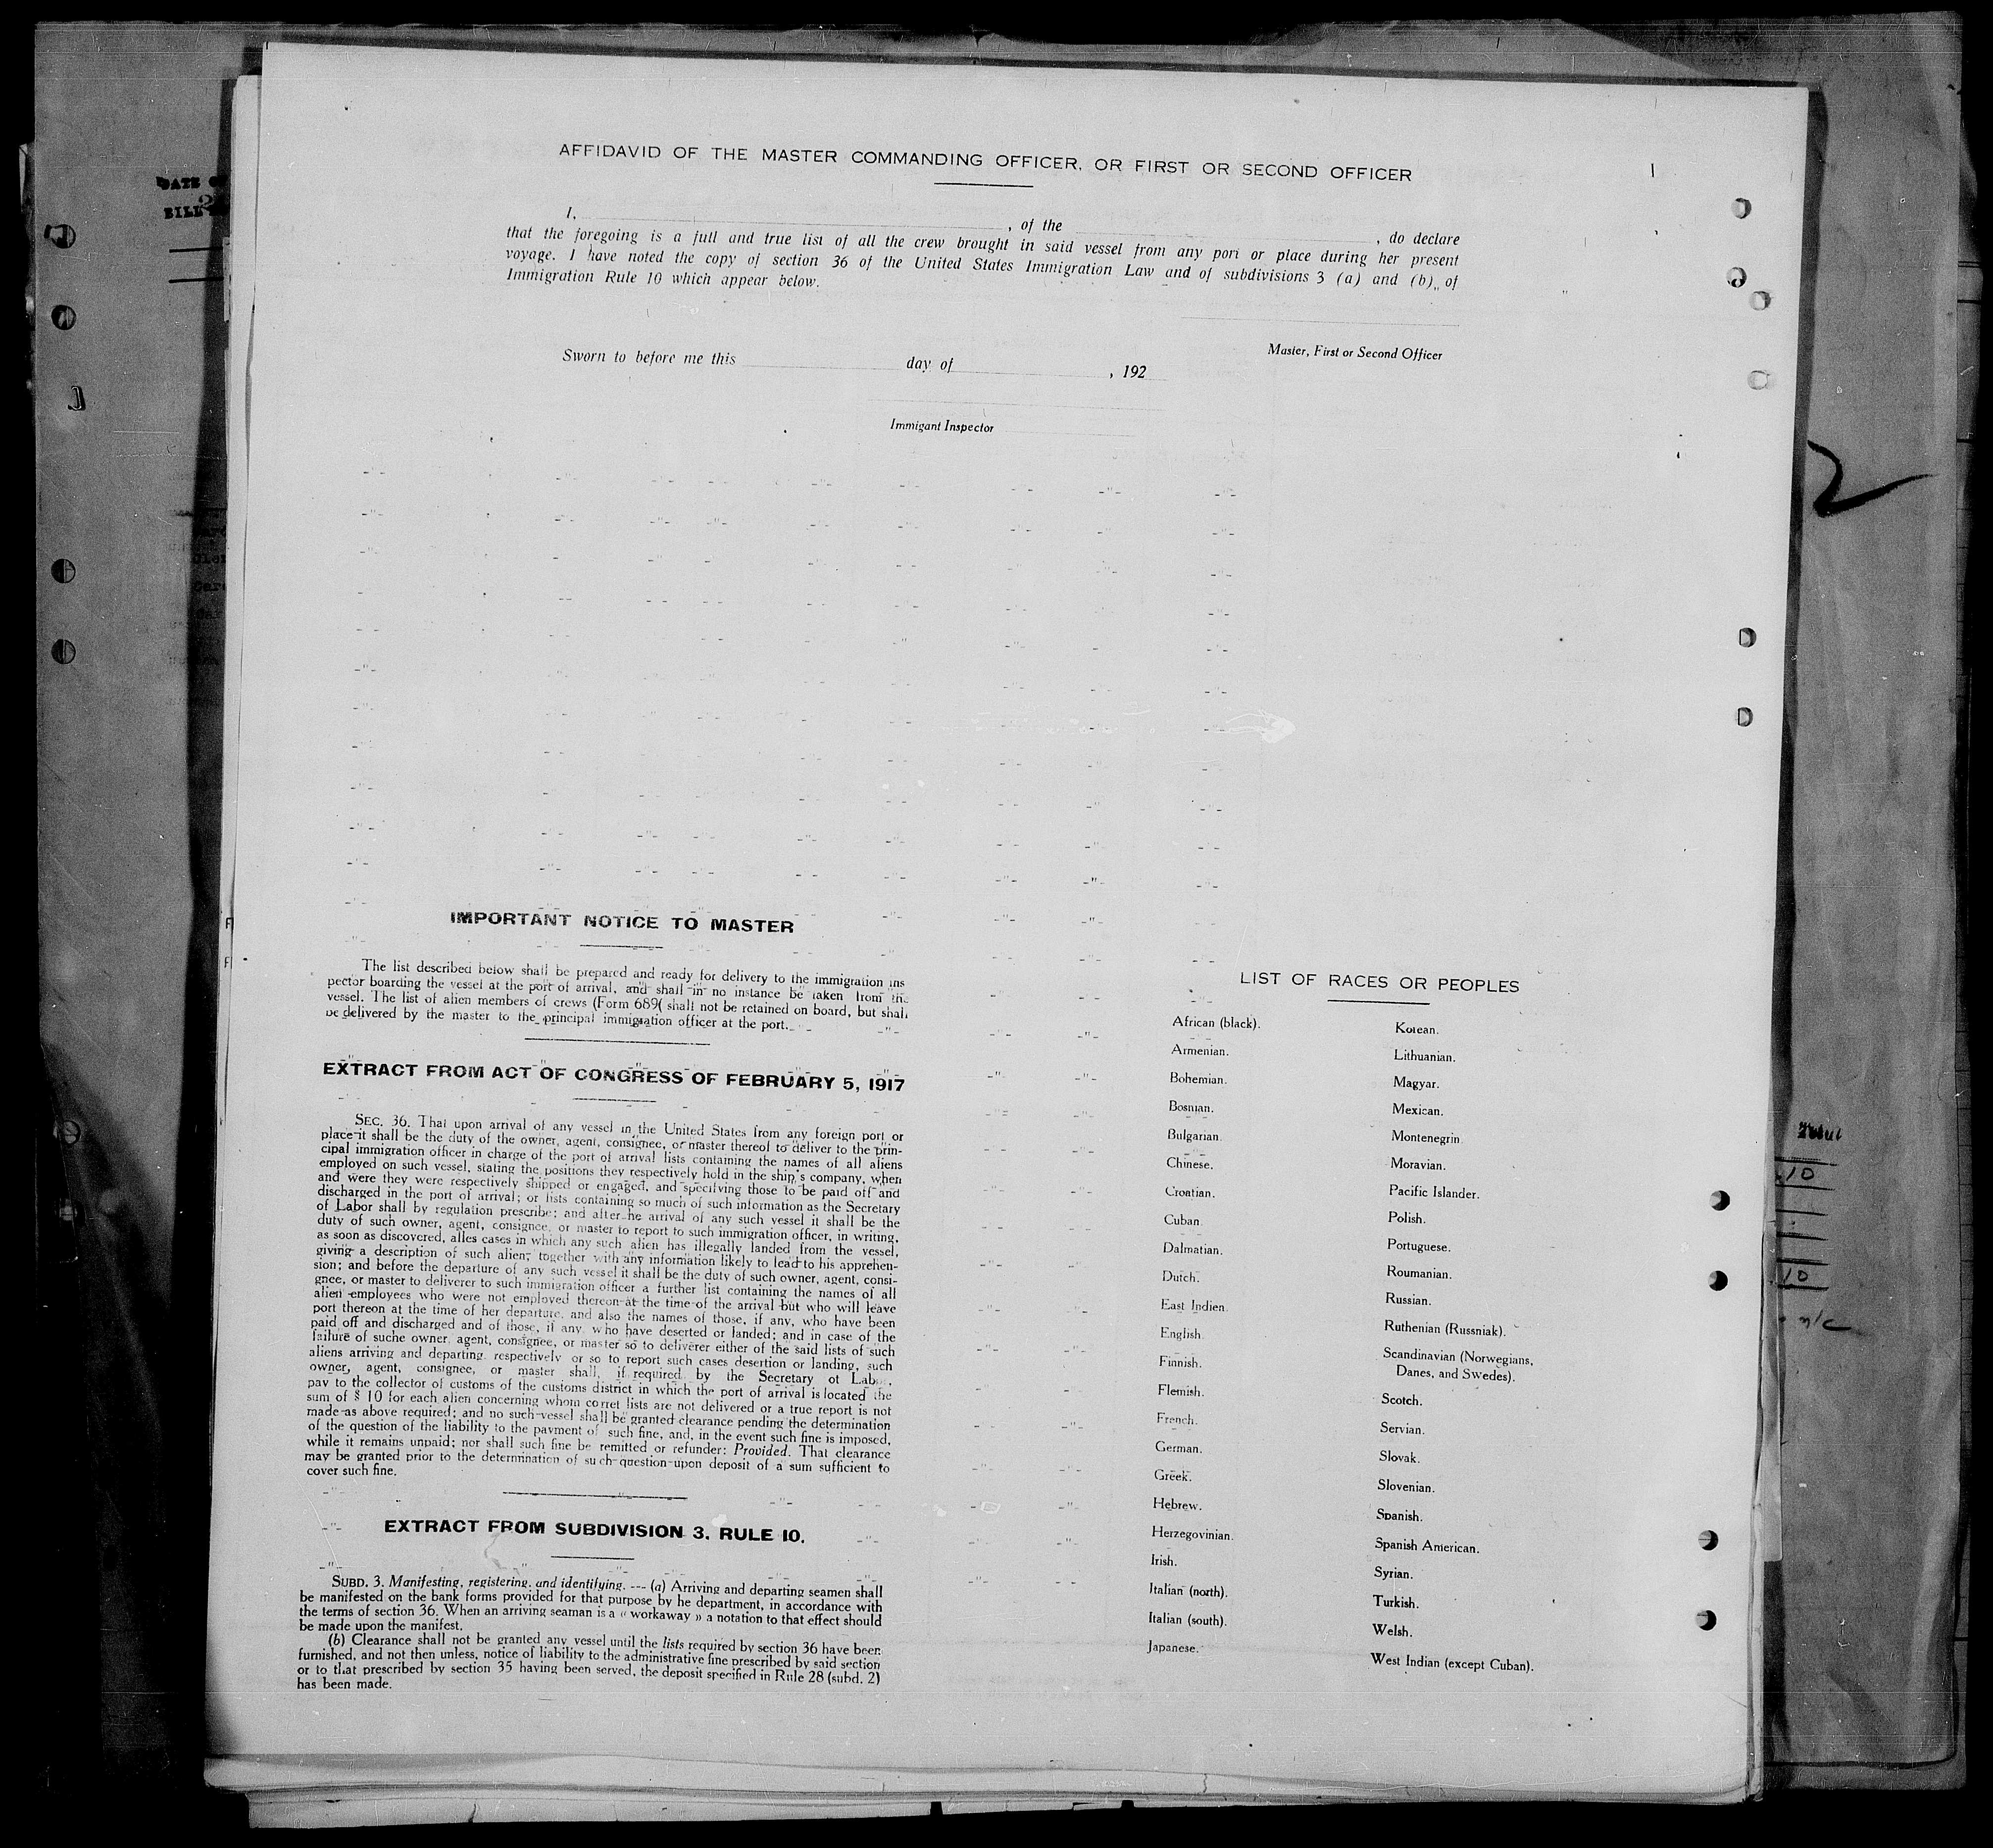 AFFIDAVID OF THE MASTER COMMANDING OFFICER, OR FIRST OR SECOND OFFICER
I, , of the , do declare
that the foregoing is a full and true list of all the crew brought in said vessel from any port or place during her present
voyage. I have noted the copy of section 36 of the United States Immigration Law and of subdivisions 3 (a) and (b), of
Immigration Rule 10 which appear below.
Master, First or Second Officer
Sworn to before me this day of , 192
Immigant Inspector
IMPORTANT NOTICE TO MASTER
The list described below shall be prepared and ready for delivery to the immigration ins
pector boarding the vessel at the port of arrival, and shall in no instance be taken from the
vessel. The list of alien members of crews (Form 689( shall not be retained on board, but shall
be delivered by the master to the principal immigration officer at the port.
EXTRACT FROM ACT OF CONGRESS OF FEBRUARY 5, 1917
SEC. 36. That upon arrival of any vessel in the United States from any foreign port or
place it shall be the duty of the owner, agent, consignee, or master thereof to deliver to the prin-
cipal immigration officer in charge of the port of arrival lists containing the names of all aliens
employed on such vessel, stating the positions they respectively hold in the ship's company, when
and were they were respectively shipped or engaged, and specifying those to be paid off and
discharged in the port of arrival; or lists containing so much of such information as the Secretary
of Labor shall by regulation prescribe; and after he arrival of any such vessel it shall be the
duty of such owner, agent, consignee, or master to report to such immigration officer, in writing,
as soon as discovered, alles cases in which any such alien has illegally landed from the vessel,
giving a description of such alien, together with any information likely to lead to his apprehen-
sion; and before the departure of any such vessel it shall be the duty of such owner, agent, consi-
gnee, or master to deliverer to such immigration officer a further list containing the names of all
alien employees who were not employed thereon at the time of the arrival but who will leave
port thereon at the time of her departure, and also the names of those, if any, who have been
paid off and discharged and of those, if any, who have deserted or landed; and in case of the
failure of suche owner, agent, consignee, or master so to deliverer either of the said lists of such
aliens arriving and departing, respectively or so to report such cases desertion or landing, such
owner, agent, consignee, or master shall, if required by the Secretary ot Labor,
pay to the collector of customs of the customs district in which the port of arrival is located the
sum of $ 10 for each alien concerning whom corret lists are not delivered or a true report is not
made as above required; and no such vessel shall be granted clearance pending the determination
of the question of the liability to the payment of such fine, and, in the event such fine is imposed,
while it remains unpaid; nor shall such fine be remitted or refunder: Provided. That clearance
may be granted prior to the determination of such question upon deposit of a sum sufficient to
cover such fine.
EXTRACT FROM SUBDIVISION 3. RULE 10.
SUBD. 3. Manifesting, registering, and identifying. --- (a) Arriving and departing seamen shall
be manifested on the bank forms provided for that purpose by he department, in accordance with
the terms of section 36. When an arriving seaman is a « workaway » a notation to that effect should
be made upon the manifest.
(b) Clearance shall not be granted any vessel until the lists required by section 36 have been
furnished, and not then unless, notice of liability to the administrative fine prescribed by said section
or to that prescribed by section 35 having been served, the deposit specified in Rule 28 (subd. 2)
has been made.
LIST OF RACES OR PEOPLES
African (black).
Armenian.
Bohemian.
Bosnian.
Bulgarian.
Chinese.
Croatian.
Cuban.
Dalmatian.
Dutch.
East Indien.
English.
Finnish.
Flemish.
French.
German.
Greek.
Hebrew.
Herzegovinian.
Irish.
Italian (north).
Italian (south).
Japanese.
Korean.
Lithuanian.
Magyar.
Mexican.
Montenegrin
Moravian.
Pacific Islander.
Polish.
Portuguese.
Roumanian.
Russian.
Ruthenian (Russniak).
Scandinavian (Norwegians,
Danes, and Swedes).
Scotch.
Servian.
Slovak.
Slovenian.
Spanish.
Spanish American.
Syrian.
Turkish.
Welsh.
West Indian (except Cuban).
DATE
BILL
2
10
10
n/c